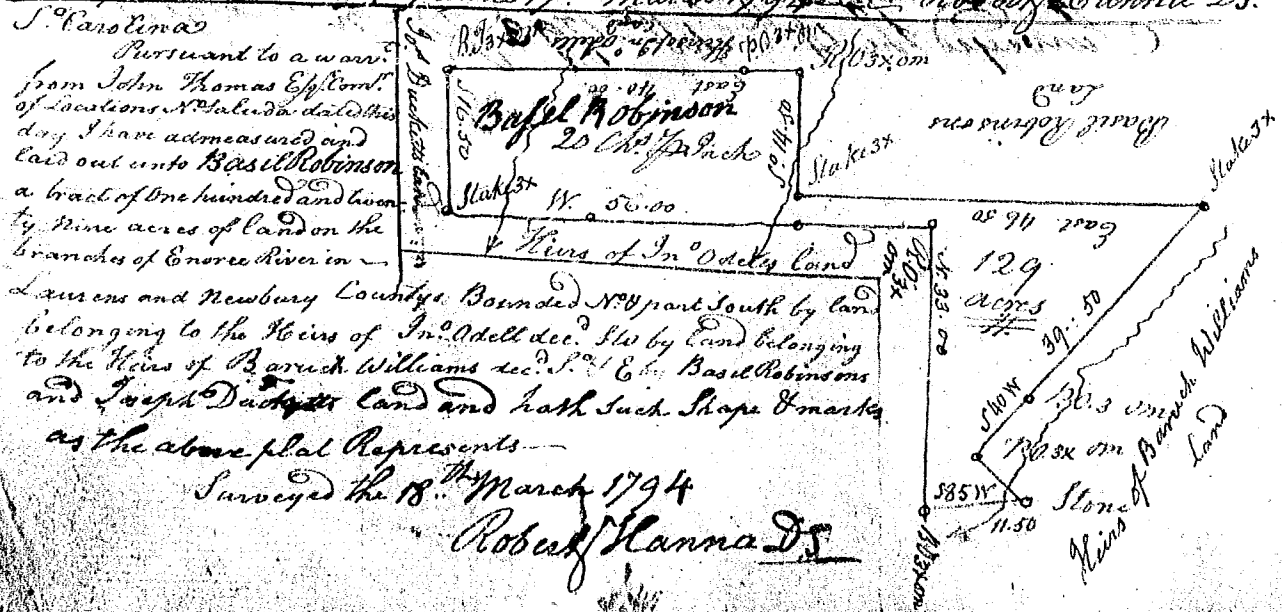 Robert Hanna DS.
So Carolina
Pursuant to a warrt
from John Thomas Esqr Comr
of Locations No Saluda dated this
day I have admeasured and
laid out unto Basil Robinson
a tract of One hundred and twen-
ty Nine acres of land on the
branches of Enoree River in
Laurens and Newbury Countys Bounded No & part South by land
belonging to the Heirs of Jno Odell decd SW by Land belonging
to the Heirs of Baruch Williams dec. So & E by Basil Robinsons
and Joseph Ducketts land and hath Such Shape & marks
as the above plat Represents
Surveyed the 18th March 1794
Robert Hanna DS
Jos Ducketts Land
S 16.50
East 40.00
Basel Robinson
20 Chs Inch
So 14.50
Stake 3x
Stake 3x
W. 56.00
Heirs of Jno Odeles land
RO3xom
Basil Robinsons
Land
Stake 3x
East 46 50
129
acres
RO3x
om
N 33.00
39..50
S40W
BO3 om
RO3x om
S85W
11.50
Stone
RO3xom
Heirs of Baruch Williams
Land